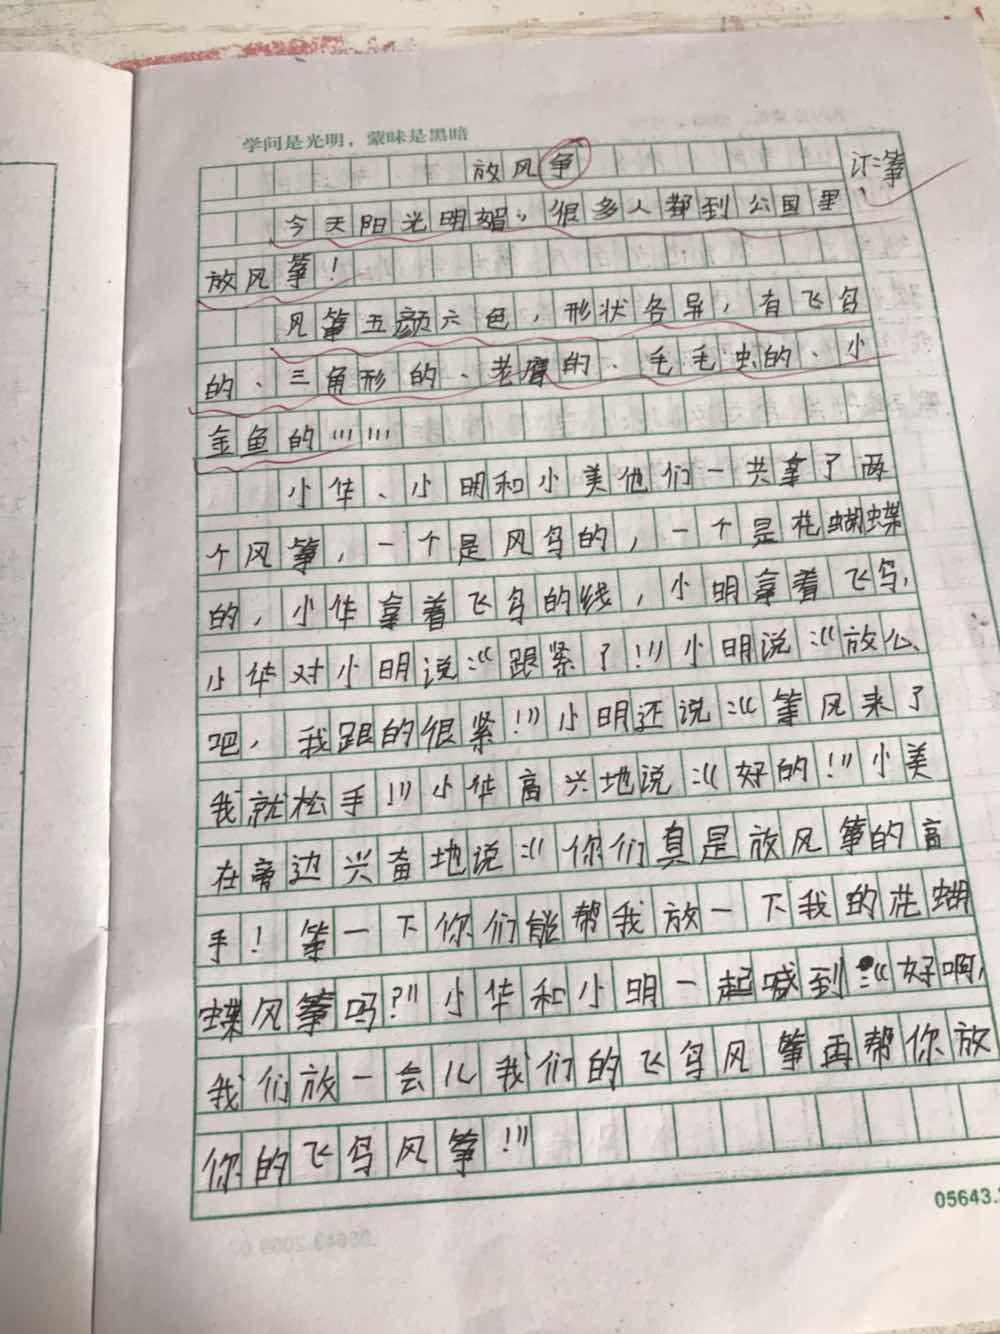 学问是光明，蒙昧是黑暗
放风争
订:筝
今天阳光明媚，很多人都到公园里
放风筝！
风筝五颜六色，形状各异，有飞鸟
的、三角形的、老鹰的、毛毛虫的、小
金鱼的……
小华、小明和小美他们一共拿了两
个风筝，一个是风鸟的，一个是花蝴蝶
的，小华拿着飞鸟的线，小明拿着飞鸟，
小华对小明说：“跟紧了！”小明说：“放心
吧，我跟的很紧！”小明还说：“等风来了
我就松手！”小华高兴地说：“好的！”小美
在旁边兴奋地说：“你们真是放风筝的高
手！等一下你们能帮我放一下我的花蝴
蝶风筝吗？”小华和小明一起喊到：“好啊，
我们放一会儿我们的飞鸟风筝再帮你放
你的飞鸟风筝！”
05643.2
05643.2009.0